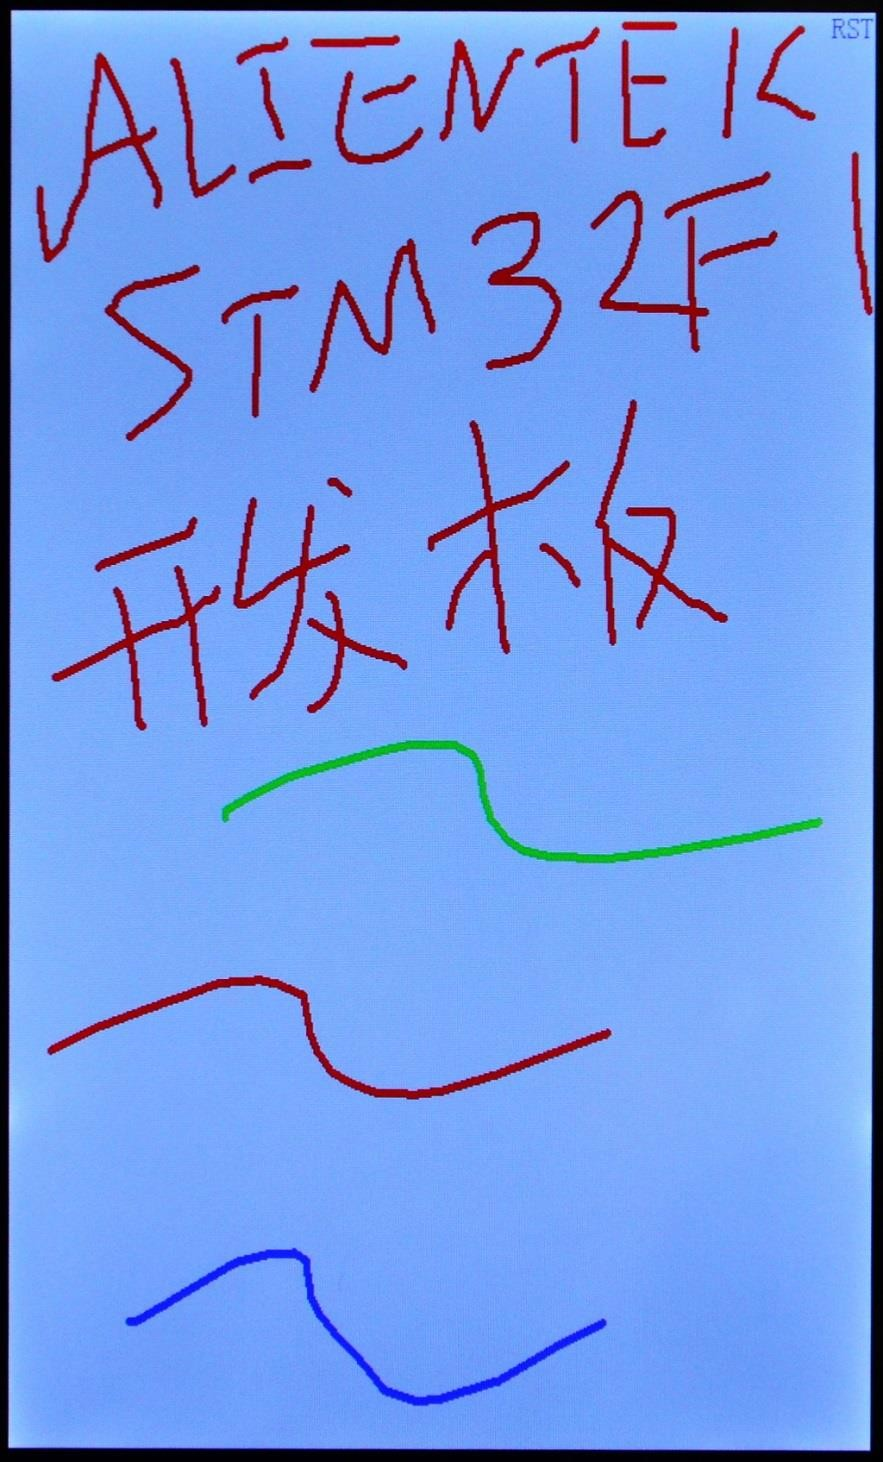 RST
ALIENTEK
STM32F1
开发板